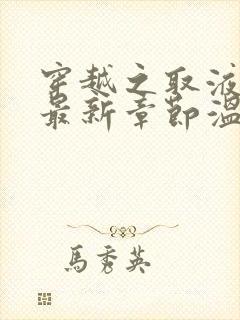 穿越之取液
最新章節溫
馬秀英